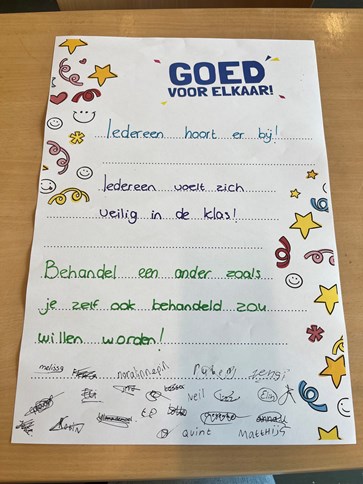 GOED
VOOR ELKAAR!
Iedereen hoort er bij!
Iedereen voelt zich
veilig in de klas!
Behandel een ander zoals
je zelf ook behandeld zou
willen worden!
melissa
Neil
Quint Matthijs